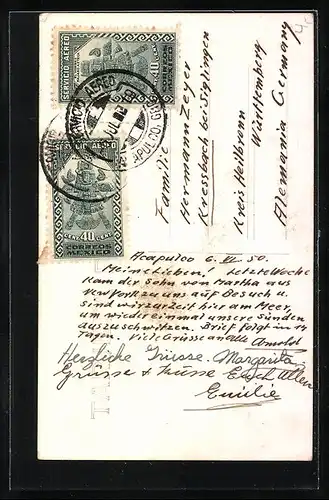 SERVICIO AEREO
40
CENTAVOS
CORREOS
MEXICO
SERVICIO AEREO
40
CORREOS
MEXICO
ACAPULCO, GRO.
Familie
Hermann Zeyer
Kressbach bei Siglingen
Kreis Heilbronn
Württemberg
Alemania Germany
Acapulco 6. VI. 50.
Meine Lieben! Letzte Woche
kam der Sohn von Martha aus
New York zu uns auf Besuch u.
sind wir zurzeit hier am Meer,
um wieder einmal unsere Sünden
auszuschwitzen. Brief folgt in 14
Tagen. Viele Grüsse an Alle Arnold
Herzliche Grüsse. Margarita.
Grüsse + Küsse Euch Allen
Emilie